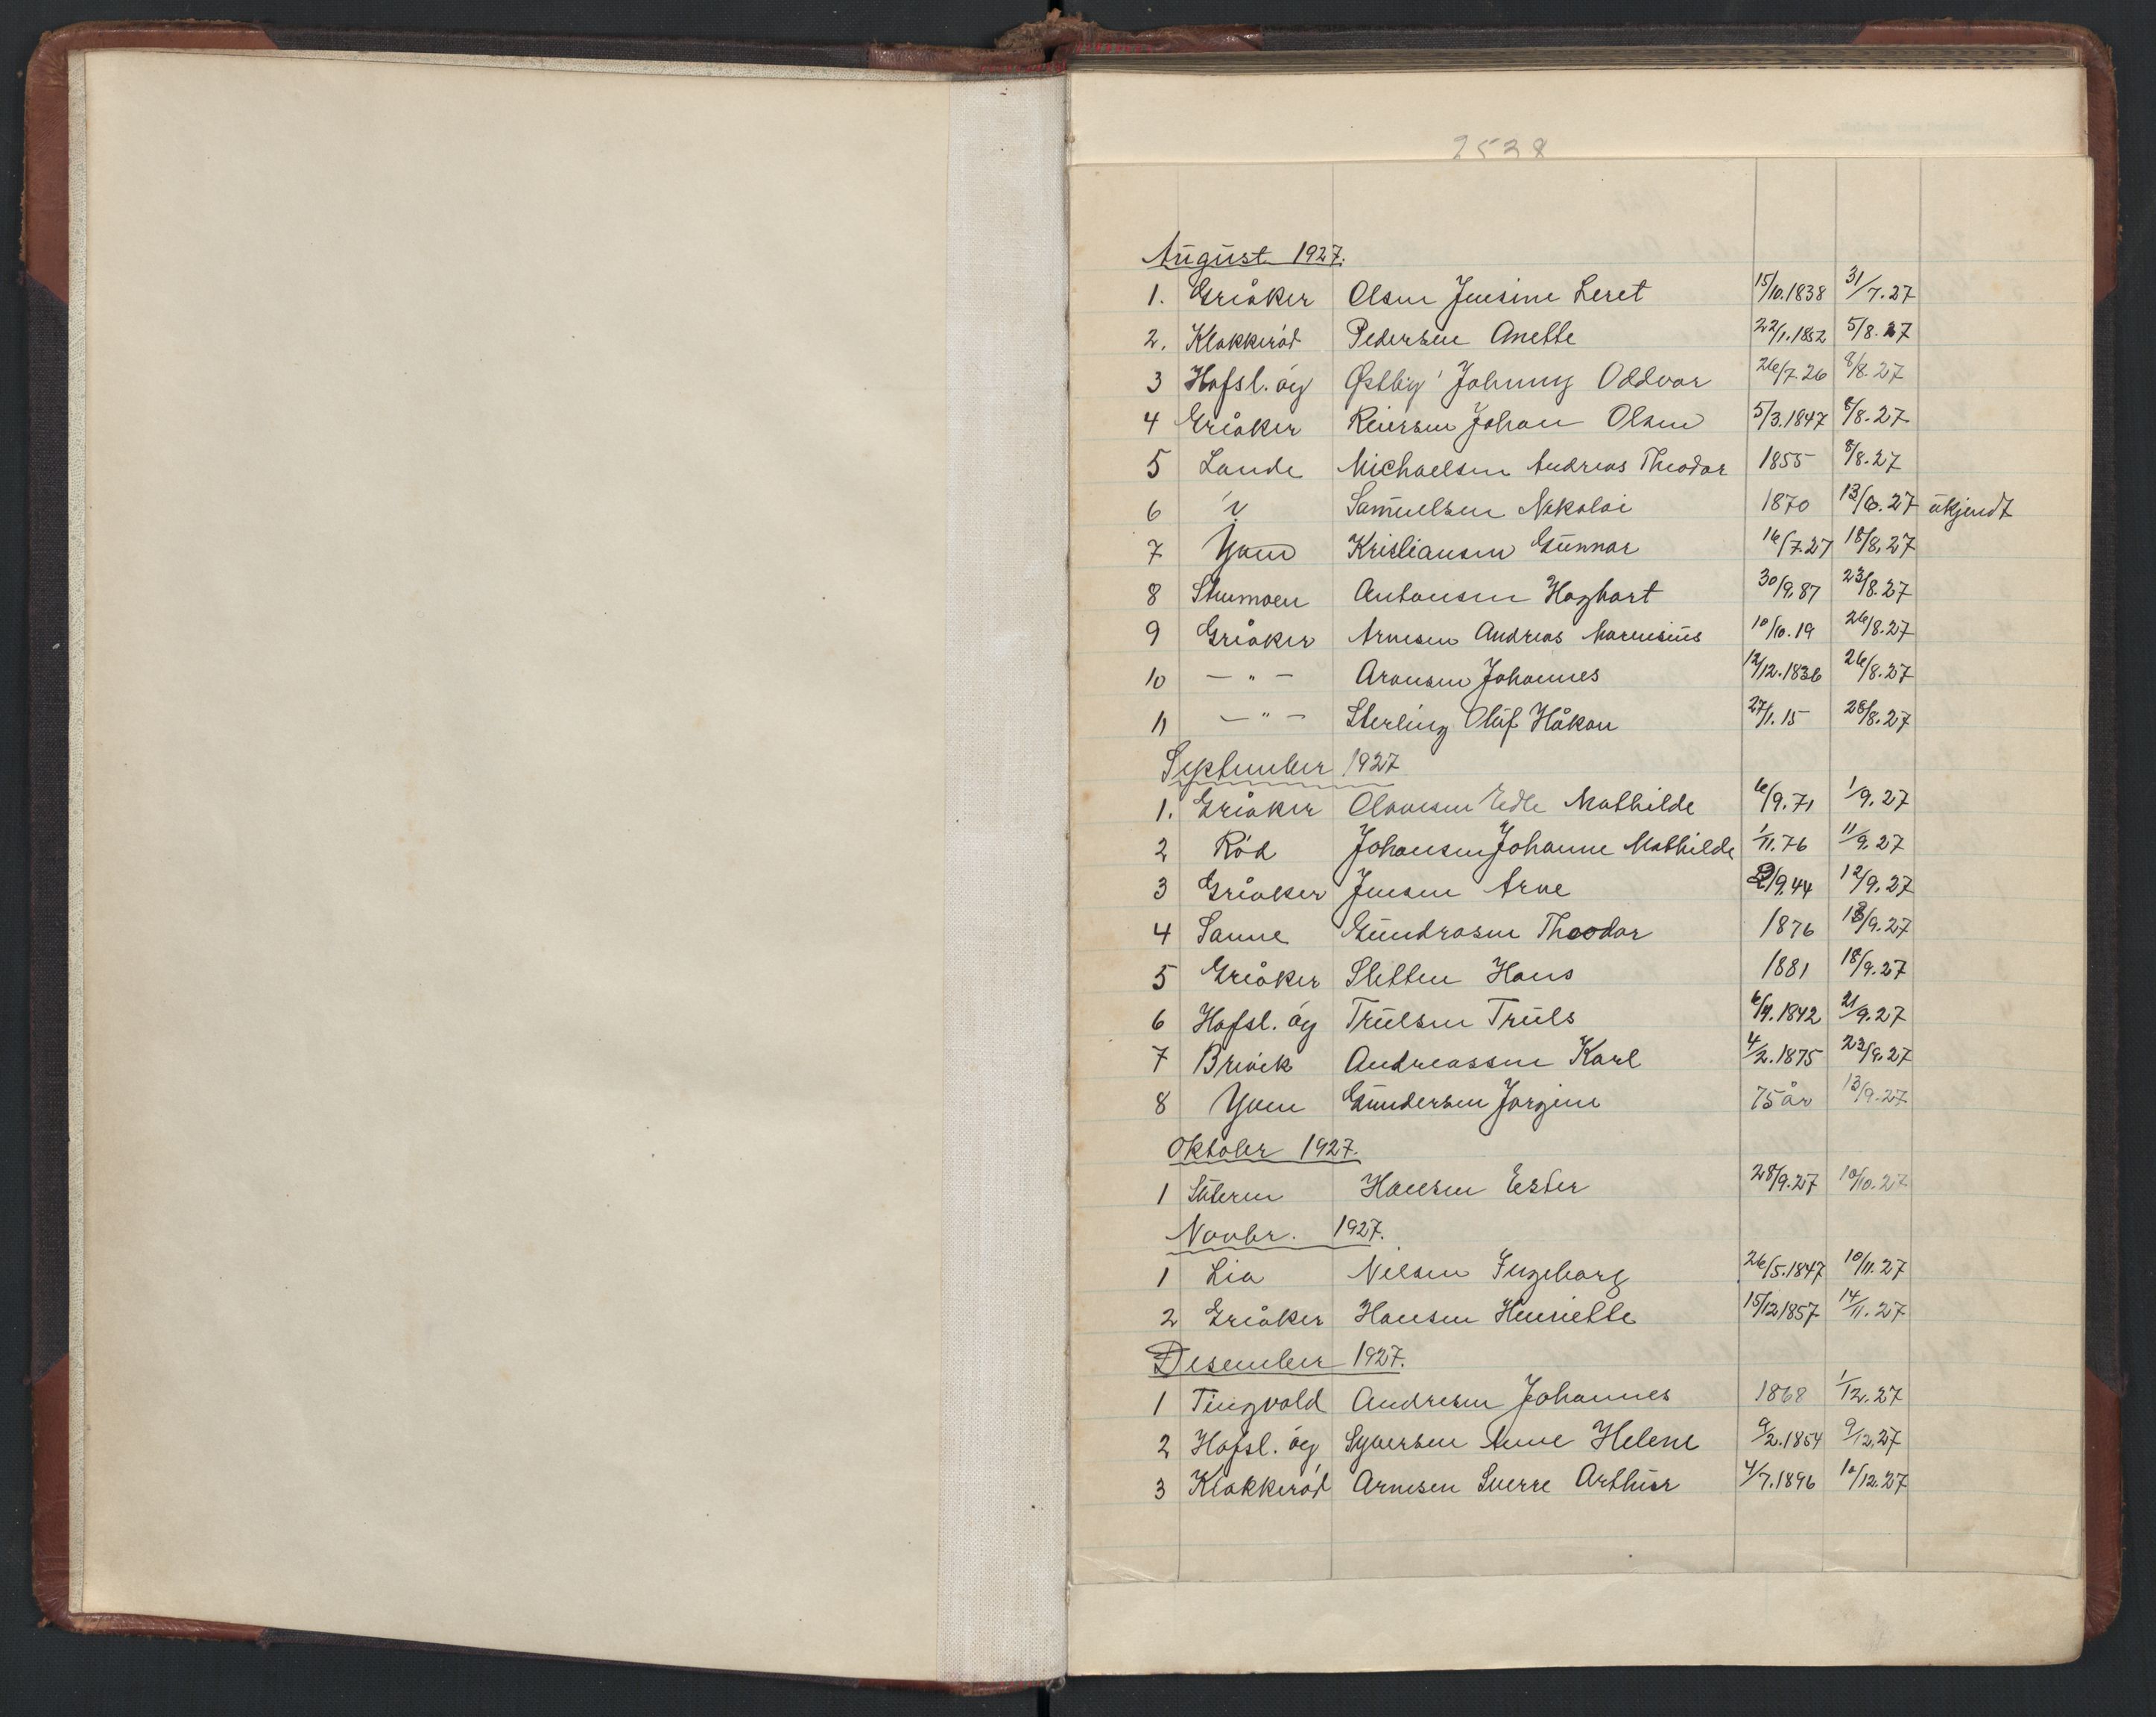 2538
August 1927.
1. Gråker Olsen Jensine Leret 15/10.1838 31/7.27
2. Klokkerød Pedersen Anette 22/1.1852 5/8.27
3 Hafsl. óg Østby Johnny Oddvar 26/7.26 8/8.27
4 Gråker Reiersen Johan Olsen 5/3.1847 8/8.27
5 Lande Michaelsen Andreas Theodor 1855 8/8.27
6 Samuelsen Nikolai 1870 13/6.27 ukjendt
7 Yven Kristiansen Gunnar 16/7.27 18/8.27
8 Stumoen Antonsen Hagbart 30/9.87 23/8.27
9 Gråker Arnesen Andreas Marensius 10/10.19 26/8.27
10 — " — Aronsen Johannes 12/12.1836 26/8.27
11 — " — Sterling Oluf Håkon 27/1.15 28/8.27
September 1927
1. Gråker Olavesen Edle Mathilde 6/9.71 1/9.27
2 Rød Johansen Johanne Mathilde 1/11.76 11/9.27
3 Gråker Jensen Arne /9.44 12/9.27
4 Sanne Gundrosen Theodor 1876 13/9.27
5 Gråker Sletten Hans 1881 18/9.27
6 Hafsl. óg Trulsen Truls 6/9.1842 21/9.27
7 Brevik Andreassen Karl 4/2.1875 23/9.27
8 Yven Gundersen Jørgine 75 år 13/9.27
Oktober 1927.
1 Hansen Ester 28/9.27 10/10.27
Novbr. 1927.
1 Lia Nilsen Ingeborg 26/5.1847 10/11.27
2 Gråker Hansen Henriette 15/12 1857 14/11.27
Desember 1927.
1 Tingvold Andresen Johannes 1868 1/12.27
2 Hafsl. óg Syversen Anne Helene 9/2.1854 9/12.27
3 Klokkerød Arnesen Sverre Arthur 4/7.1896 10/12.27